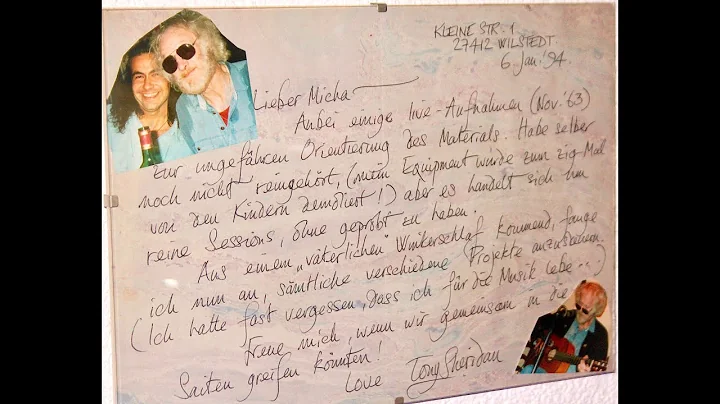 KLEINE STR. 1
27412 WILSTEDT.
6. Jan. '94.
Lieber Micha —
Anbei einige live-Aufnahmen (Nov. '63)
zur ungefähren Orientierung des Materials. Habe selber
noch nicht reingehört, (mein Equipment wurde zum zig-Mal
von den Kindern demoliert!) aber es handelt sich um
reine Sessions, ohne geprobt zu haben.
Aus einem „väterlichen" Winterschlaf kommend, fange
ich nun an, sämtliche verschiedene Projekte anzusteuern.
(Ich hatte fast vergessen, dass ich für die Musik lebe...)
Freue mich, wenn wir gemeinsam in die
Saiten greifen könnten!
Love Tony Sheridan